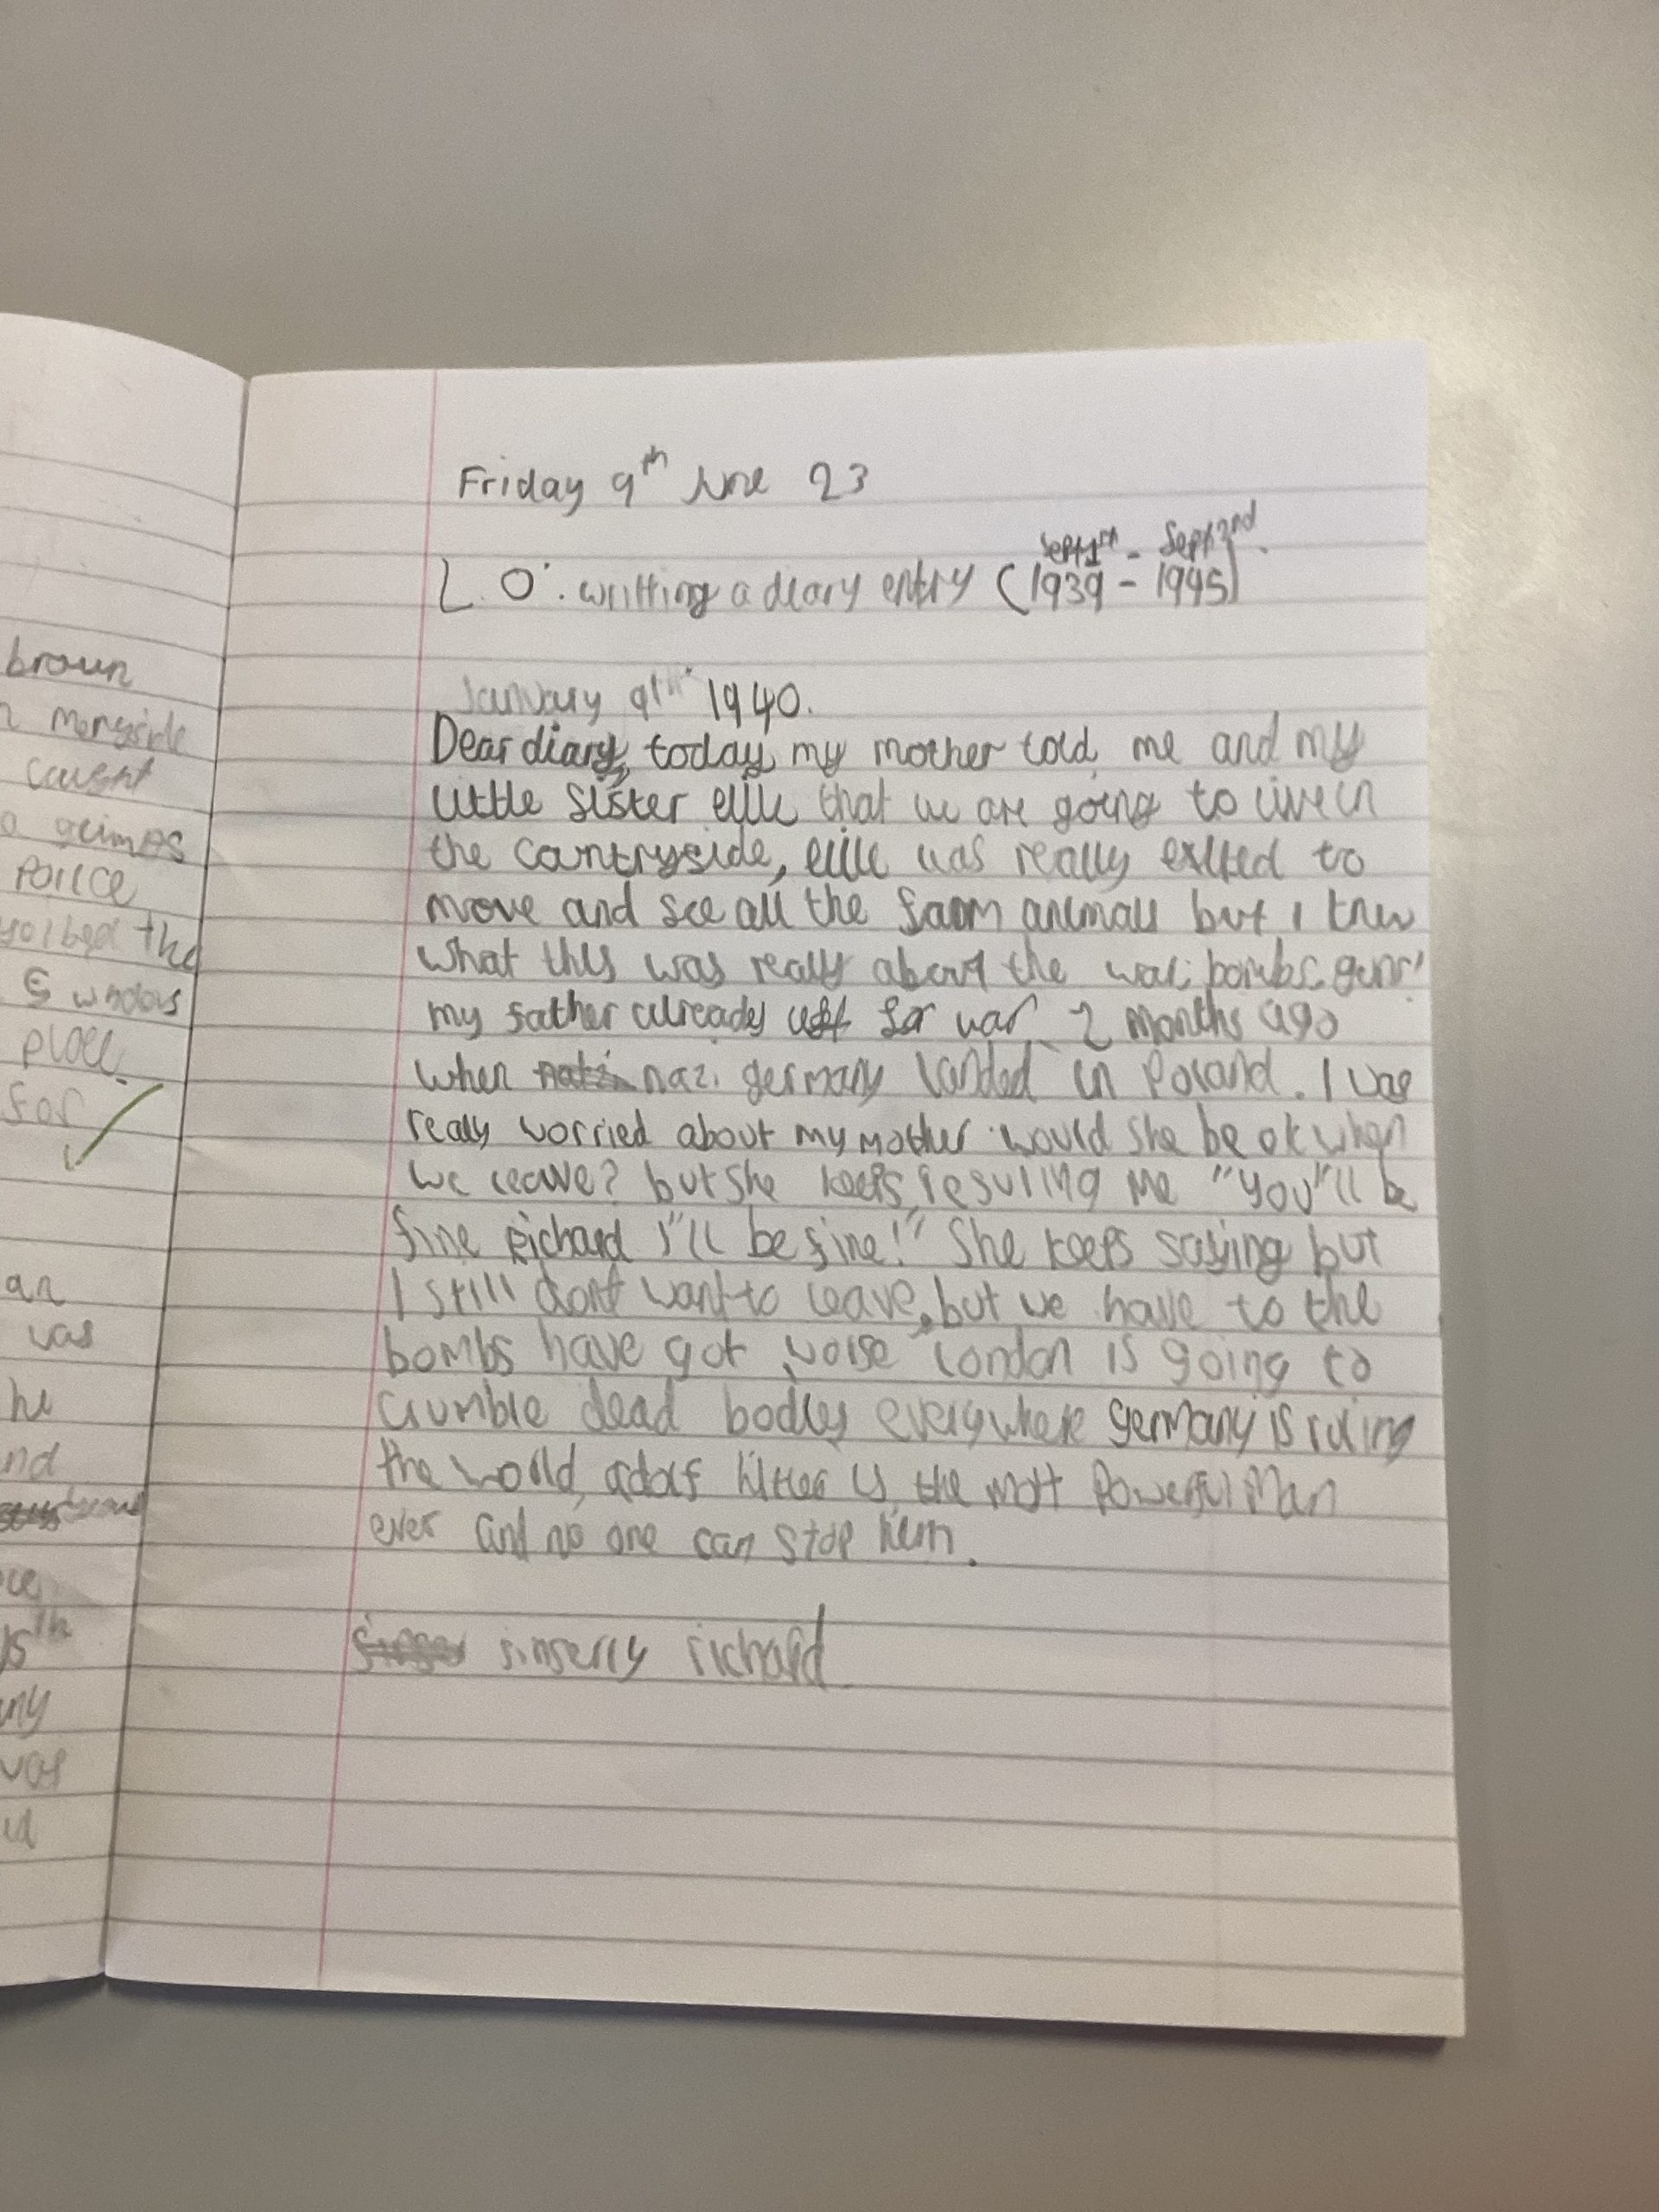 Friday 9th June 23
Sept 1st - Sept 2nd
L.O: writting a diary entry (1939 - 1945)
January 9th 1940.
Dear diary, today my mother told me and my
little sister ellie that we are going to live in
the countryside, ellie was really exited to
move and see all the farm animals but I knew
what this was really about the war, bombs, guns!
my father already left for war 2 months ago
when nazi germany landed in Poland. I was
really worried about my mother would she be ok when
we leave? but she keeps me "you"ll be
fine Richard I"ll be fine!" She keeps saying but
I still dont want to leave, but we have to the
bombs have got worse London is going to
crumble dead bodies everywhere germany is ruling
the world, adolf hitler is the most Powerful Man
ever and no one can stop him.
sinserly richard
brown
caught
a
Police
the
5
place.
for
an
was
he
nd